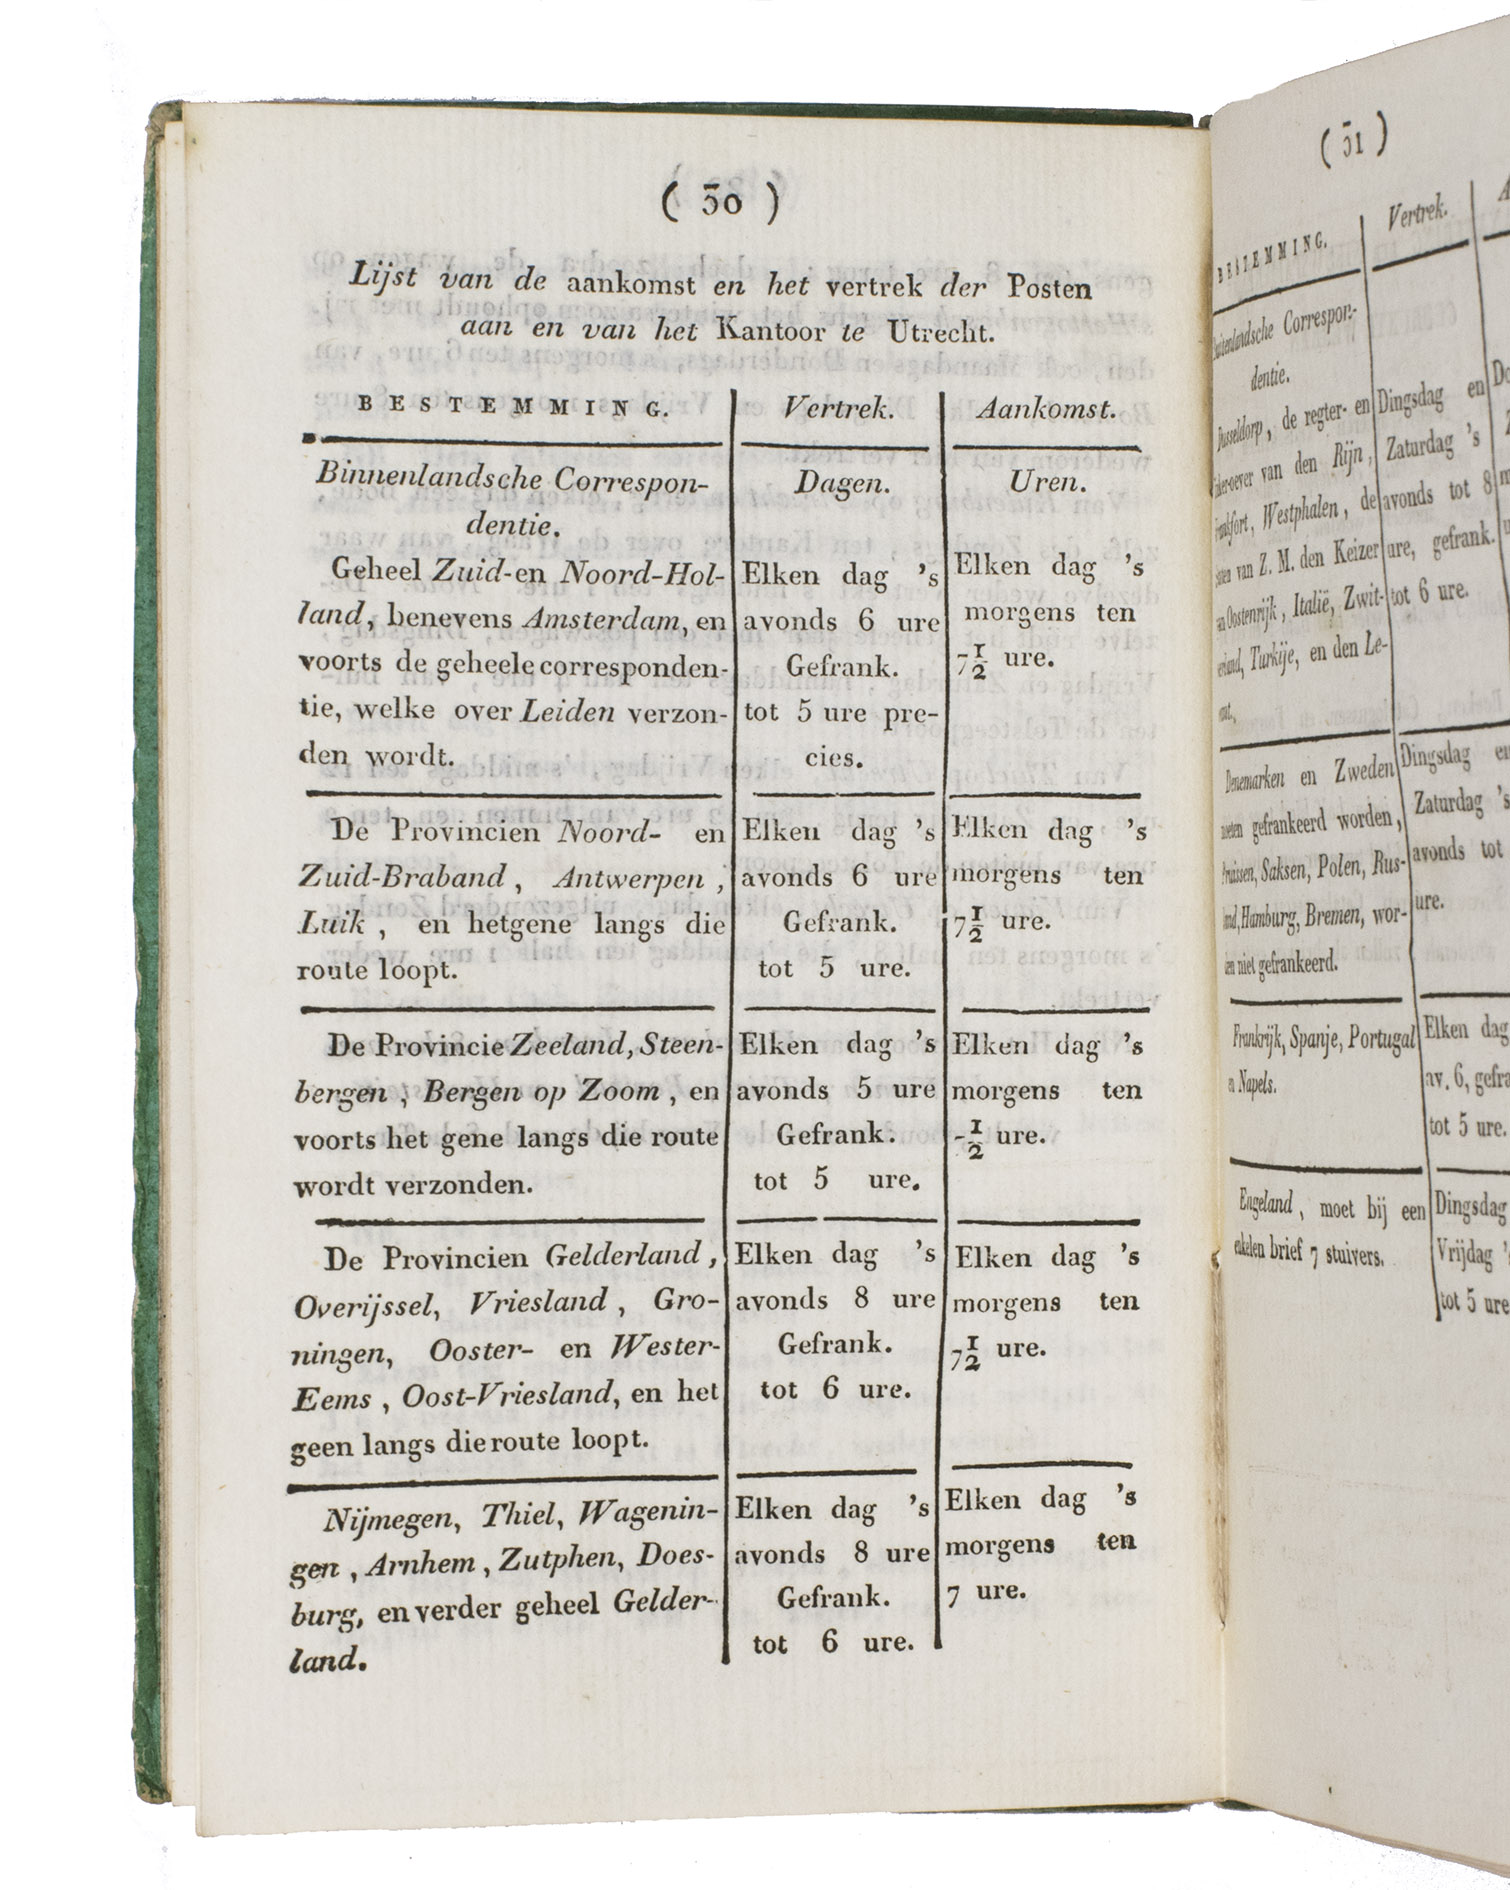 ( 30 )
Lijst van de aankomst en het vertrek der Posten
aan en van het Kantoor te Utrecht.
BESTEMMING.
Vertrek.
Aankomst.
Binnenlandsche Correspon-
dentie.
Dagen.
Uren.
Geheel Zuid- en Noord-Hol-
land, benevens Amsterdam, en
voorts de geheele corresponden-
tie, welke over Leiden verzon-
den wordt.
Elken dag 's
avonds 6 ure
Gefrank.
tot 5 ure pre-
cies.
Elken dag 's
morgens ten
7½ ure.
De Provincien Noord- en
Zuid-Braband, Antwerpen,
Luik, en hetgene langs die
route loopt.
Elken dag 's
avonds 6 ure
Gefrank.
tot 5 ure.
Elken dag 's
morgens ten
7½ ure.
De Provincie Zeeland, Steen-
bergen, Bergen op Zoom, en
voorts het gene langs die route
wordt verzonden.
Elken dag 's
avonds 5 ure
Gefrank.
tot 5 ure.
Elken dag 's
morgens ten
½ ure.
De Provincien Gelderland,
Overijssel, Vriesland, Gro-
ningen, Ooster- en Wester-
Eems, Oost-Vriesland, en het
geen langs die route loopt.
Elken dag 's
avonds 8 ure
Gefrank.
tot 6 ure.
Elken dag 's
morgens ten
7½ ure.
Nijmegen, Thiel, Wagenin-
gen, Arnhem, Zutphen, Does-
burg, en verder geheel Gelder-
land.
Elken dag 's
avonds 8 ure
Gefrank.
tot 6 ure.
Elken dag 's
morgens ten
7 ure.
( 31 )
BESTEMMING.
Vertrek.
Correspon-
dentie.
Dusseldorp, de regter- en
van den Rijn,
Westphalen, de
van Z. M. den Keizer
Oostenrijk, Italië, Zwit-
Turkije, en den Le-
Dingsdag en
Zaturdag 's
avonds tot 8
ure, gefrank.
tot 6 ure.
Denemarken en Zweden
moeten gefrankeerd worden,
Pruissen, Saksen, Polen, Rus-
Hamburg, Bremen, wor-
niet gefrankeerd.
Dingsdag en
Zaturdag 's
avonds tot
ure.
Frankrijk, Spanje, Portugal
en Napels.
Elken dag
av. 6, gefra
tot 5 ure.
Engeland, moet bij een
enkelen brief 7 stuivers.
Dingsdag
Vrijdag
tot 5 ure